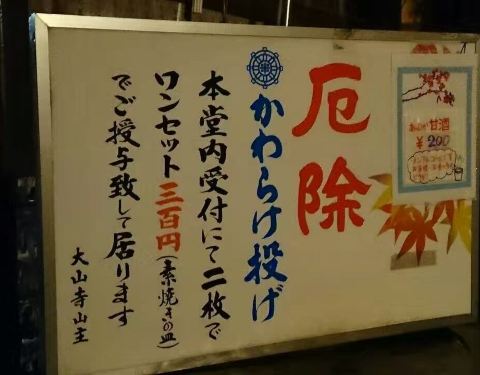 厄除
かわらけ投げ
本堂内受付にて二枚で
ワンセット三百円(素焼きの皿)
でご授与致して居ります
大山寺山主
甘酒
¥200